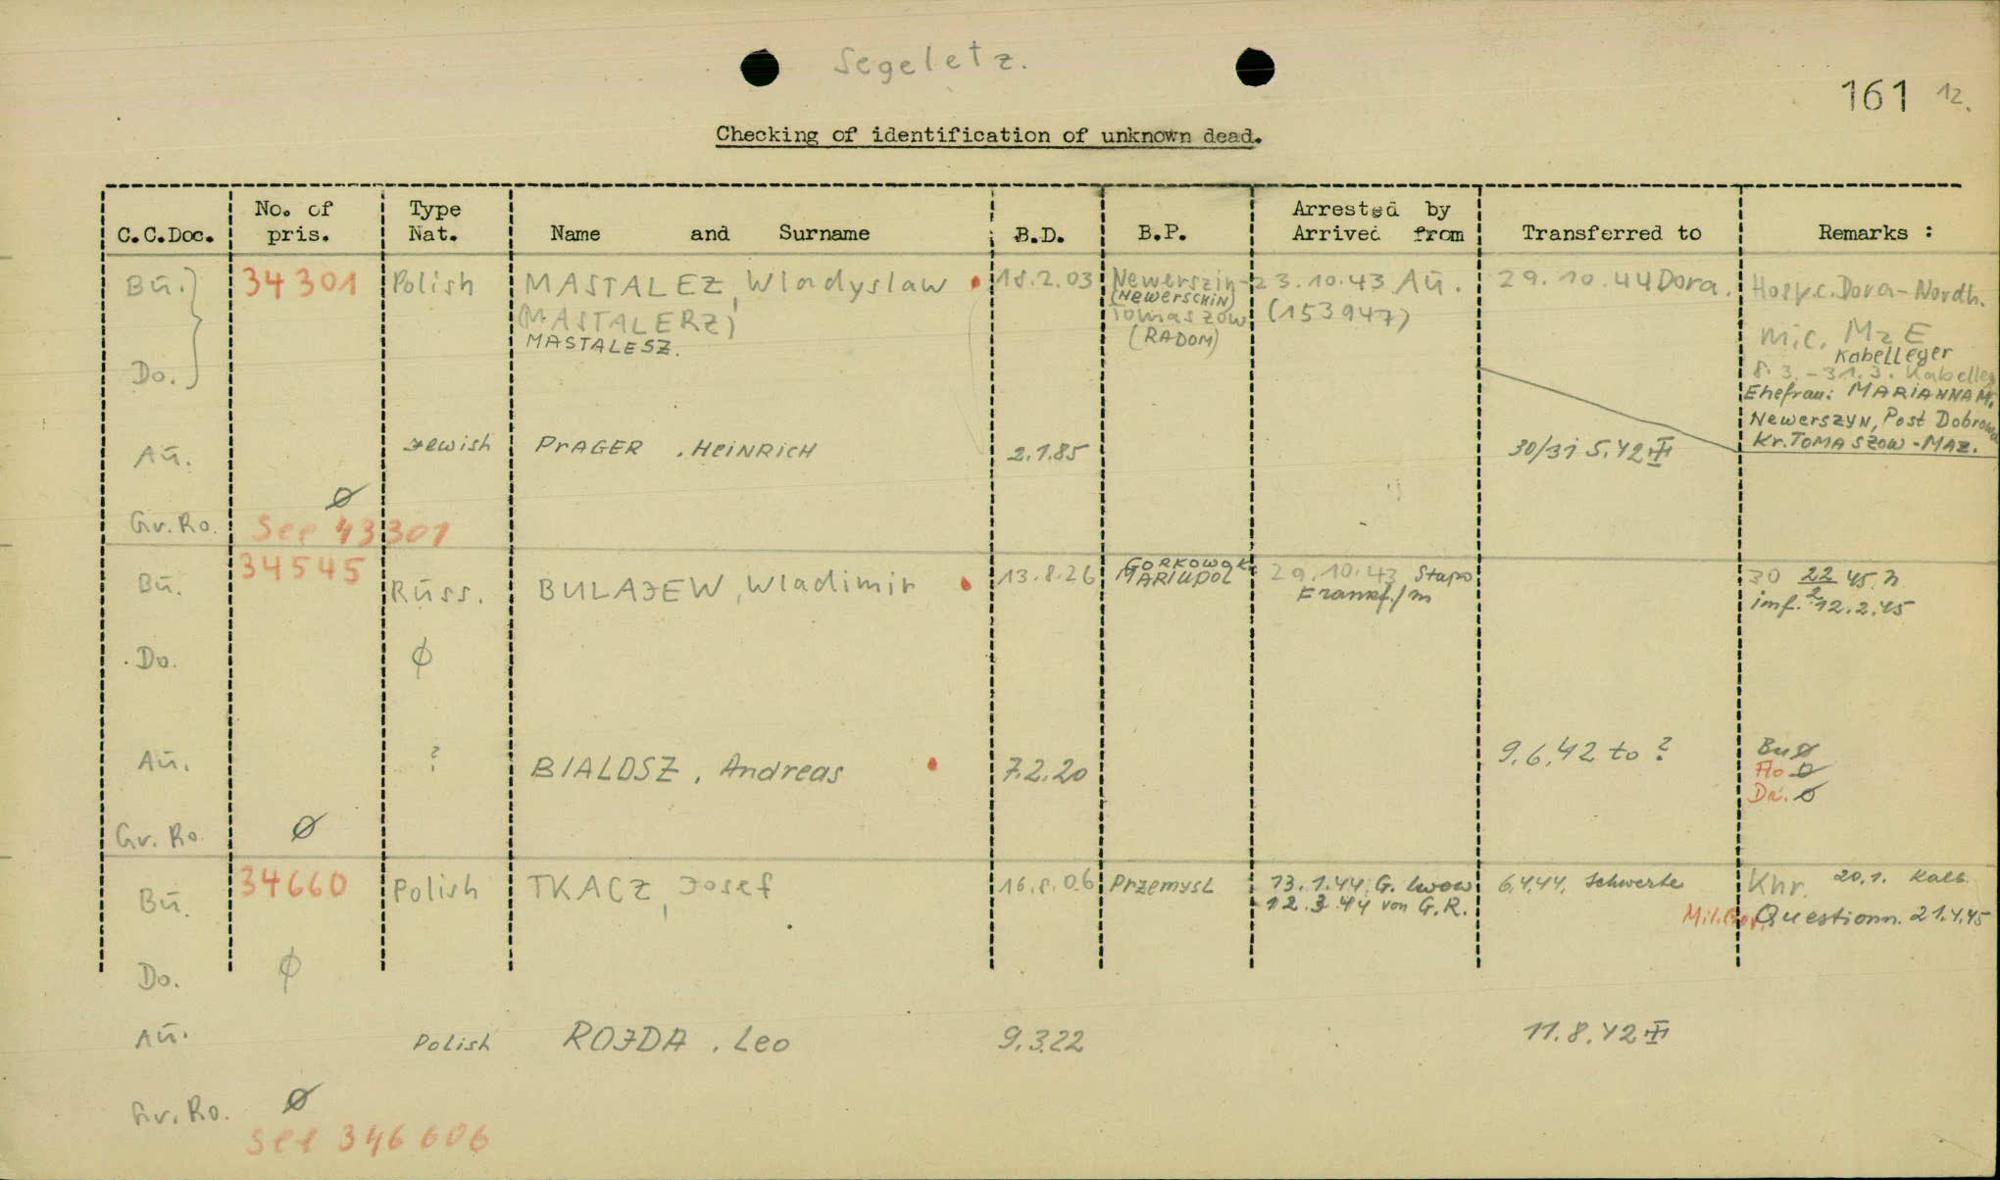 Segeletz.
161 12.
Checking of identification of unknown dead.
C.C.Doc. No. of pris. Type Nat. Name and Surname B.D. B.P. Arrested by Arrived from Transferred to Remarks :
Bu. 34301 Polish MASTALEZ, Wladyslaw 18.2.03 Newerszin- 23.10.43 Au. 29.10.44 Dora. Hosp.c. Dora-Nordh.
(NEWERSCHIN)
(MASTALERZ) Tomaszow (153947)
MASTALESZ. (RADOM) Mic. MzE
Kabelleger
Do. 8.3.-31.3. Kabelleg
Ehefrau: MARIANNA M.
Newerszyn, Post Dobrowa
Au. Jewish PRAGER, HEINRICH 2.1.85 30/31 5.42 III Kr. TOMASZOW-MAZ.
Ø
Gr. Ro. See 43301
34545 GORKOWOKA
Bu. Russ. BULAJEW, Wladimir 13.8.26 MARIUPOL 29.10.43 Stapo 30 22/2 45 n
Frankf./M imf. 12.2.45
Do. Ø
Au. ? BIALOSZ, Andreas 7.2.20 9.6.42 to ? Bu Ø
Flo Ø
Da. Ø
Gr. Ro. Ø
Bu. 34660 Polish TKACZ, Josef 16.8.06 Przemysl 13.1.44 G. Lwow 6.4.44. Schwerte Khr. 20.1. Kalb.
12.3.44 von G.R. Mil.Gov. Questionn. 21.4.45
Do. Ø
Au. Polish ROJDA, Leo 9.3.22 11.8.42 III
Gr. Ro. Ø
See 346606